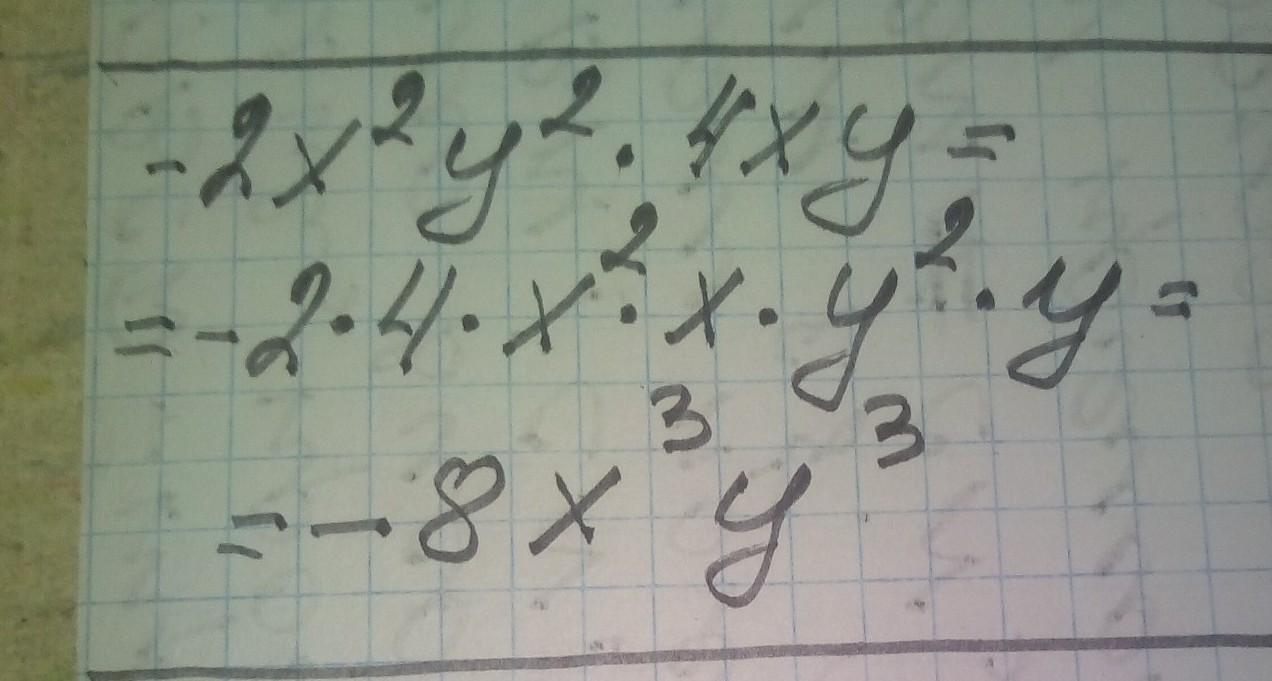 -2x²y² · 4xy =
= -2 · 4 · x² · x · y² · y =
= -8x³y³